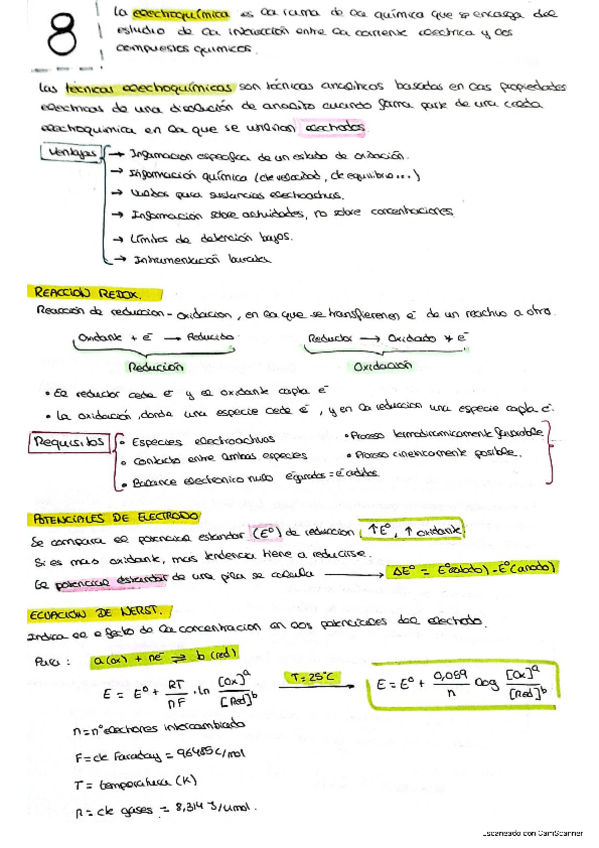 8
La electroquímica es la rama de la química que se encarga del
estudio de la interacción entre la corriente electrica y los
compuestos químicos.
Las técnicas electroquímicas son técnicas analíticas basadas en las propiedades
electricas de una disolución de analito cuando forma parte de una celda
electroquimica en la que se utilizan electrodos.
Ventajas
→ Informacion especifica de un estado de oxidación.
→ Información química (de velocidad, de equilibrio...)
→ Validos para sustancias electroactivas.
→ Información sobre actividades, no sobre concentraciones
→ Límites de detención bajos.
→ Intrumentación barata
REACCION REDOX.
Reacción de reduccion-oxidacion, en la que se transfierenen e⁻ de un reactivo a otro.
Oxidante + e⁻ → Reducido Reductor → Oxidado + e⁻
Redución Oxidación
• El reductor cede e⁻ y el oxidante capta e⁻
• La oxidación, donde una especie cede e⁻, y en la reduccion una especie capta e⁻.
Requisitos
• Especies electroactivas • Proceso termodinamicamente favorable
• Contacto entre ambas especies • Proceso cineticamente posible.
• Balance electronico nulo e⁻ganados = e⁻cedidos
POTENCIALES DE ELECTRODO
Se compara el potencial estandar (E⁰) de reduccion ↑E⁰, ↑ oxidante
Si es mas oxidante, mas tendencia tiene a reducirse.
El potencial estandar de una pila se calcula → ΔE⁰ = E⁰(catodo) - E⁰(anodo)
ECUACION DE NERST.
Indica el efecto de la concentracion en los potenciales del electrodo.
Para: a(ox) + ne⁻ ⇌ b(red)
E = E⁰ + RT/nF · ln [Ox]ᵃ/[Red]ᵇ T=25°C → E = E⁰ + 0,059/n log [Ox]ᵃ/[Red]ᵇ
n = nº electrones intercambiado
F = cte Faraday = 96485 C/mol
T = temperatura (K)
R = cte gases = 8,314 J/Kmol.
Escaneado con CamScanner